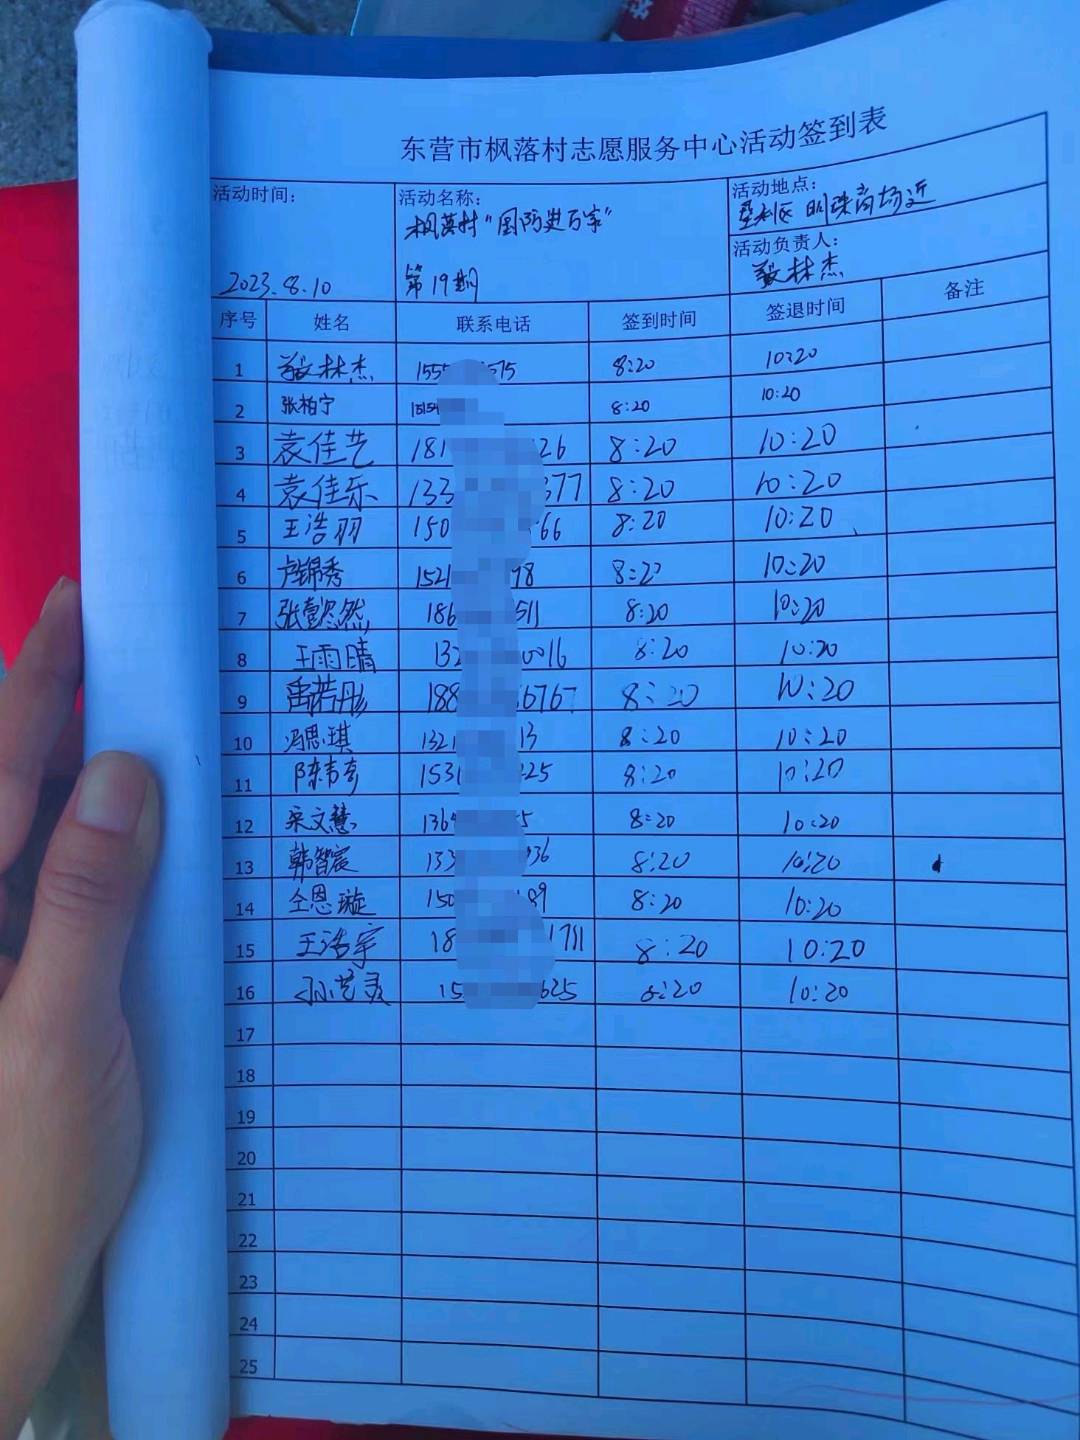 东营市枫落村志愿服务中心活动签到表
活动时间: 2023.8.10
活动名称: 枫落村"国防进万家"
第19期
活动地点: 垦利区 明珠商场近
活动负责人: 敬林杰
序号 姓名 联系电话 签到时间 签退时间 备注
1 敬林杰 155 575 8:20 10:20
2 张柏宁 15154 8:20 10:20
3 袁佳艺 181 26 8:20 10:20
4 袁佳乐 133 377 8:20 10:20
5 王浩羽 150 66 8:20 10:20
6 卢锦秀 1521 98 8:20 10:20
7 张壹忽然 186 511 8:20 10:20
8 王雨晴 132 0016 8:20 10:20
9 禹若彤 188 6767 8:20 10:20
10 冯思琪 1321 13 8:20 10:20
11 陈韦奇 1531 225 8:20 10:20
12 宋文慧 136 5 8:20 10:20
13 韩智宸 133 936 8:20 10:20
14 仝恩漩 150 89 8:20 10:20
15 王浩宇 18 1711 8:20 10:20
16 孙艺灵 15 625 8:20 10:20
17
18
19
20
21
22
23
24
25